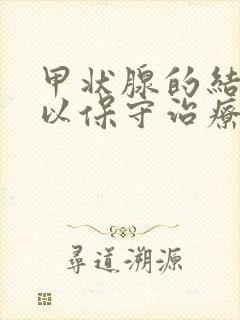 甲状腺的結
以保守治療
尋道溯源